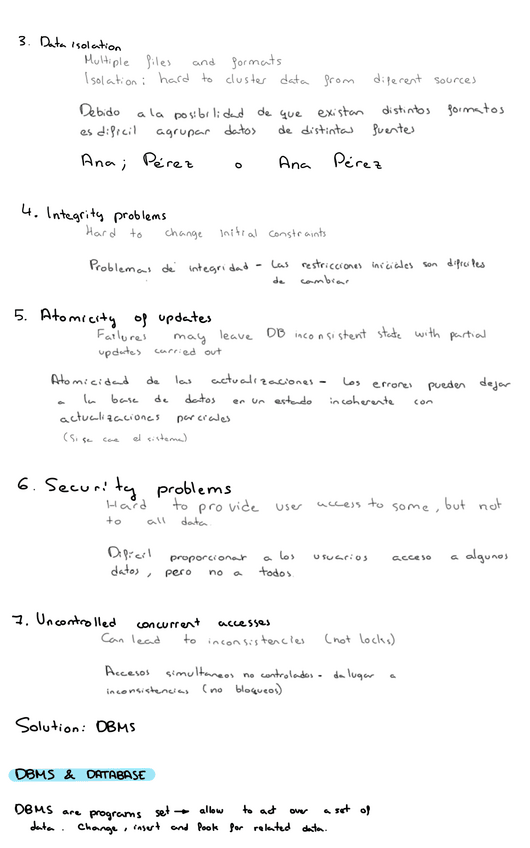 3. Data Isolation
Multiple files and formats
Isolation: hard to cluster data from diferent sources
Debido a la posibilidad de que existan distintos formatos
es dificil agrupar datos de distintas fuentes
Ana; Pérez o Ana Pérez
4. Integrity problems
Hard to change initial constraints
Problemas de integridad - Las restricciones iniciales son dificiles
de cambiar
5. Atomicity of updates
Failures may leave DB inconsistent state with partial
updates carried out
Atomicidad de las actualizaciones - Los errores pueden dejar
a la base de datos en un estado incoherente con
actualizaciones parciales
(Si se cae el sistema)
6. Security problems
Hard to provide user access to some, but not
to all data.
Dificil proporcionar a los usuarios acceso a algunos
datos, pero no a todos.
7. Uncontrolled concurrent accesses
Can lead to inconsistencies (not locks)
Accesos simultaneos no controlados - da lugar a
inconsistencias (no bloqueos)
Solution: DBMS
DBMS & DATABASE
DBMS are programs set → allow to act over a set of
data. Change, insert and look for related data.